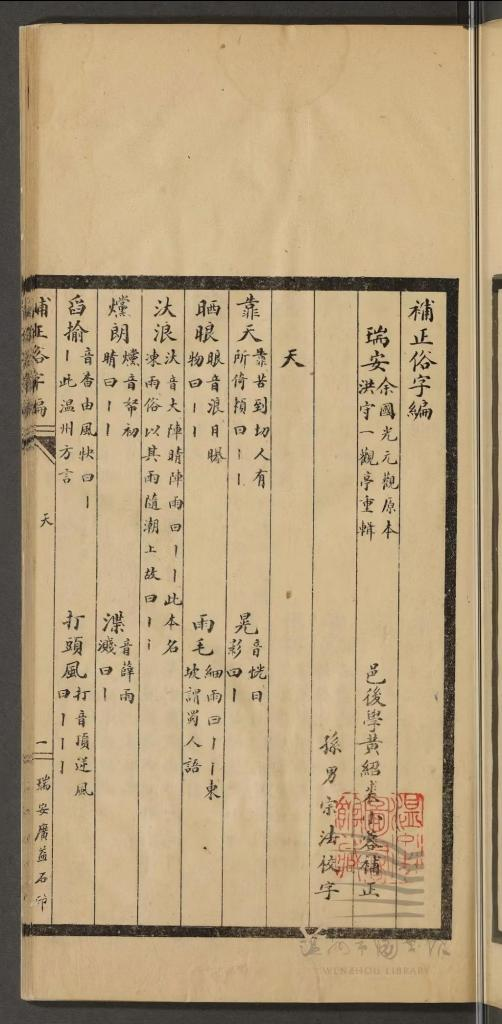 補正俗字編
瑞安 余國光元觀原本 洪守一觀亭重輯 邑後學黃紹 小蓉補正
孫男宗法校字
天
靠天 靠苦到切人有所倚頼曰丨丨 晃 音恍日影曰丨
晒眼 眼音浪日曝物曰丨丨 雨毛 細雨曰丨丨東坡謂蜀人語
汏浪 汏音大陣晴陣雨曰丨丨此本名涷雨俗以其雨隨潮上故曰丨丨
爣朗 爣音帑初晴曰丨丨 渫 音薛雨濺曰丨
舀揄 音香由風快曰丨丨此温州方言 打頭風 打音頂逆風曰丨丨丨
補正俗字編 天 一 瑞安廣益石印
温州市圖書館
WENZHOU LIBRARY